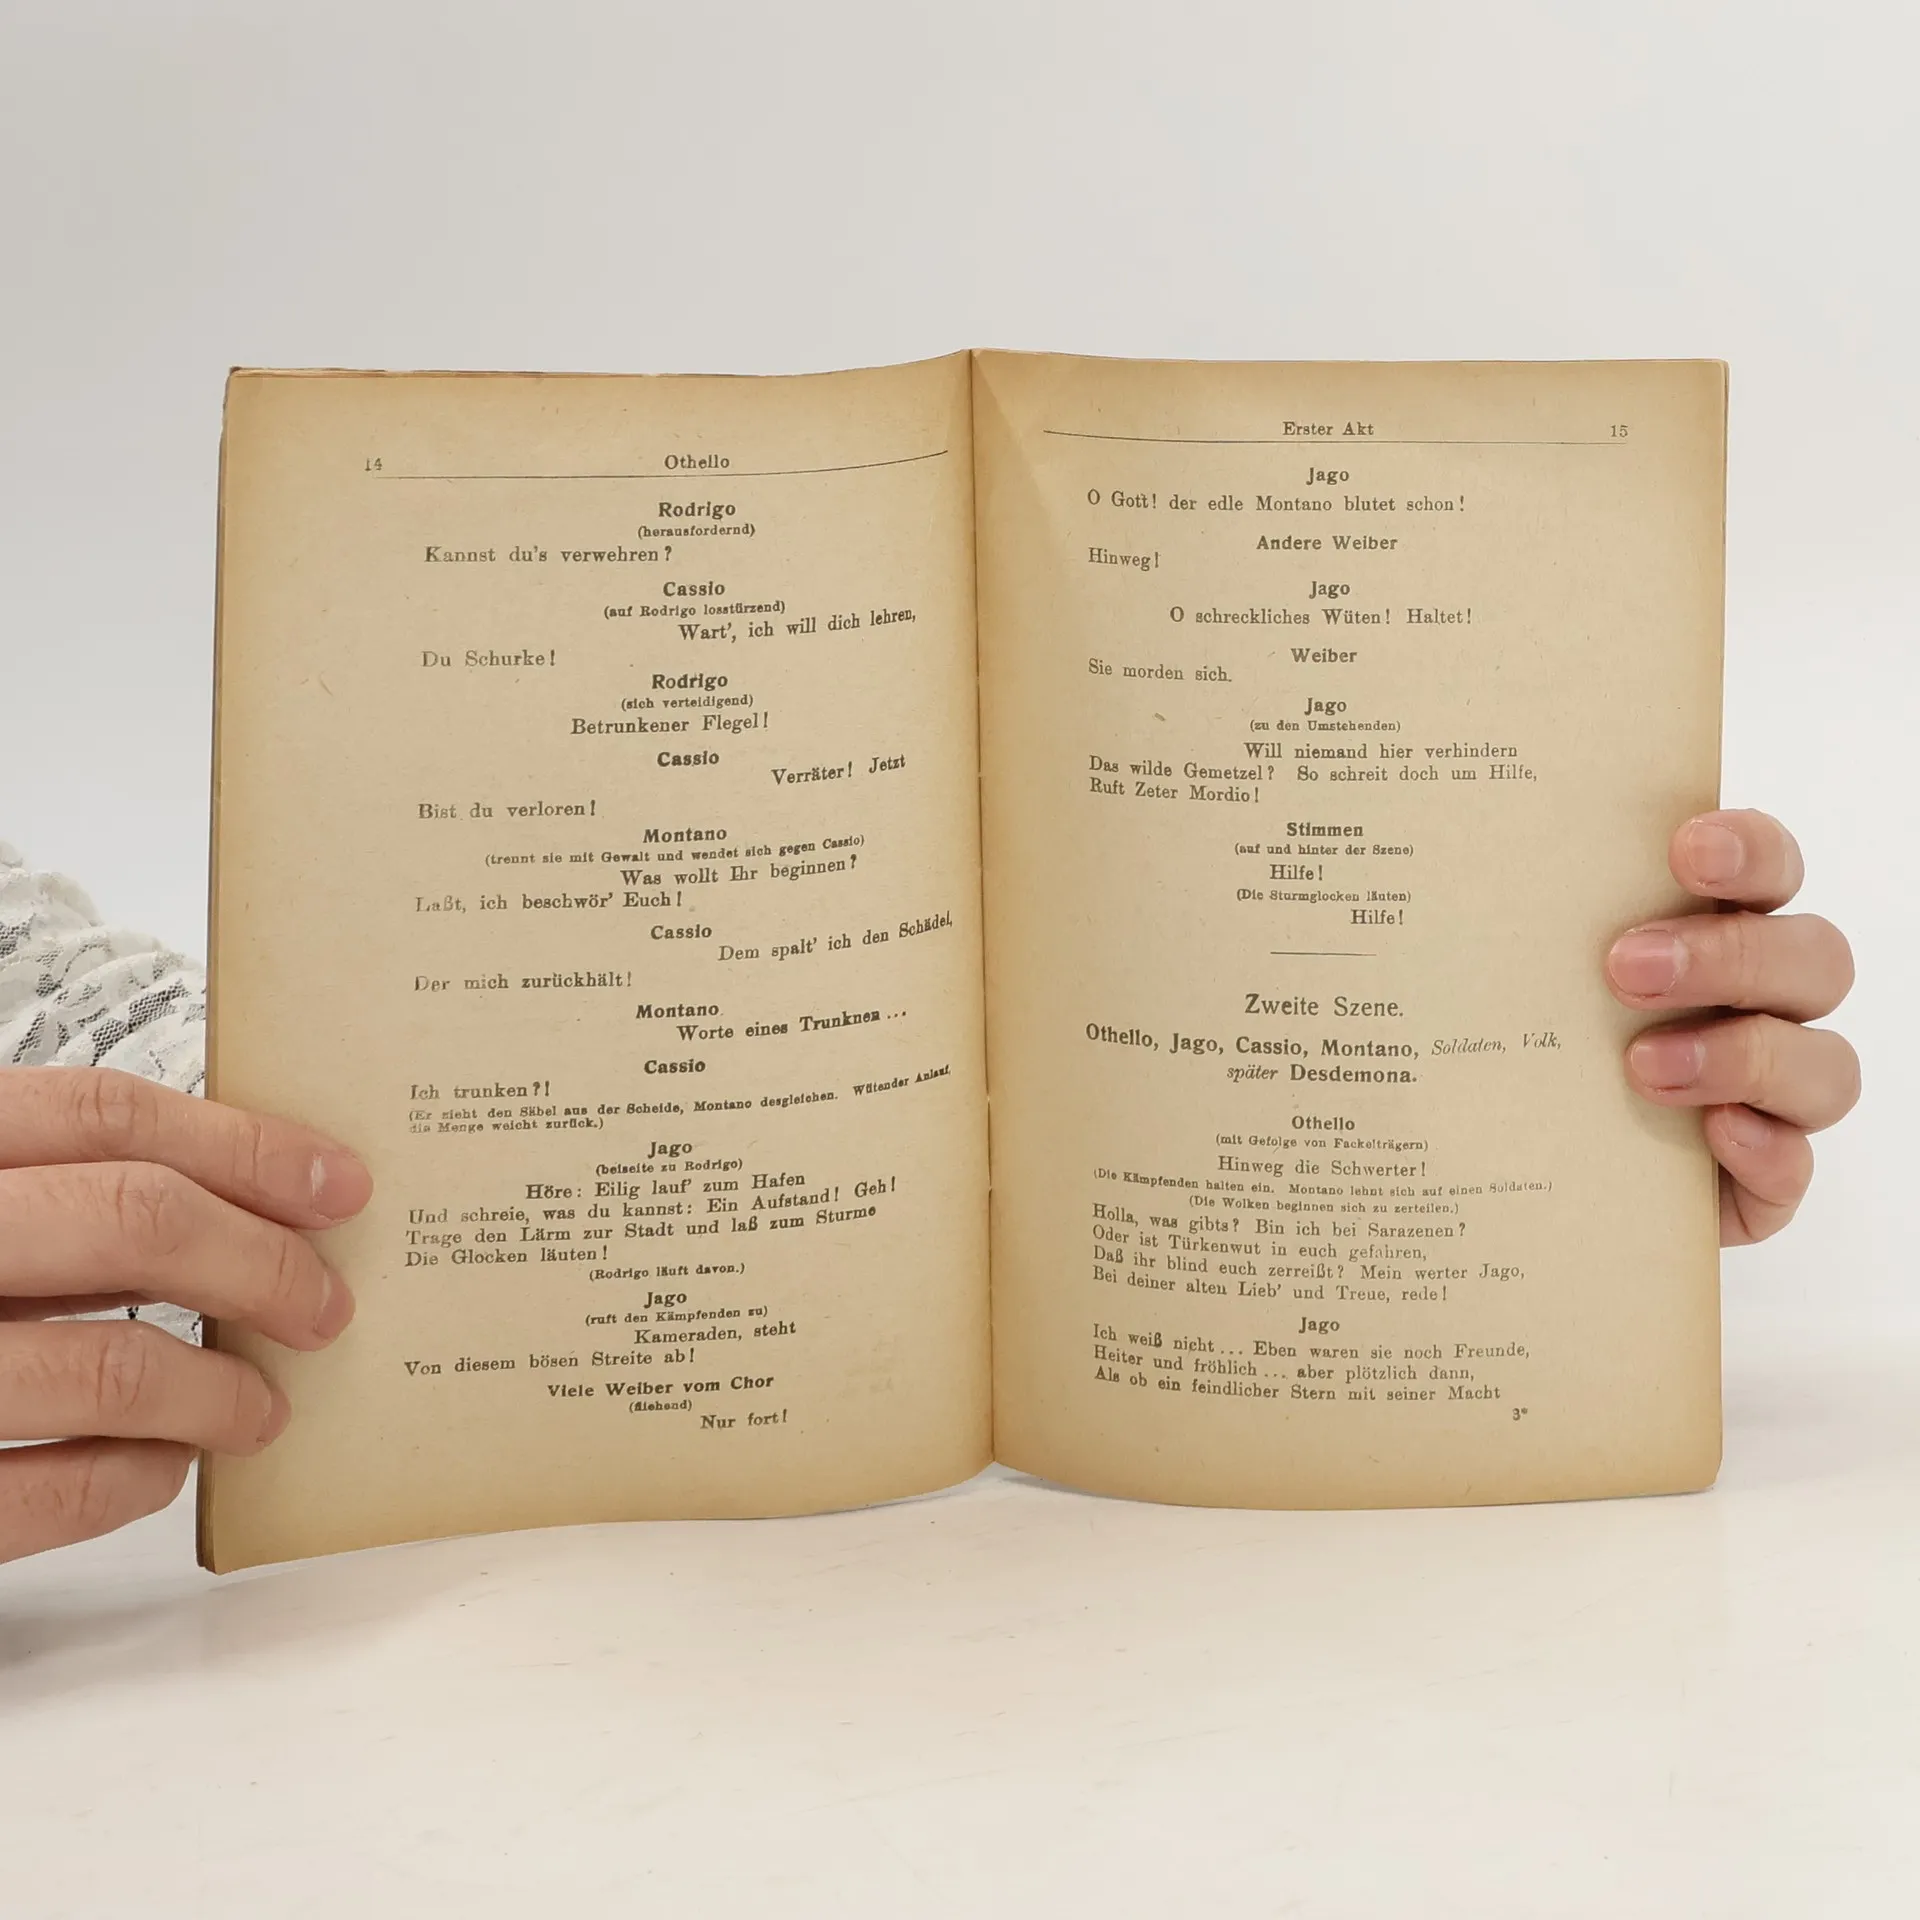 14
Othello
Rodrigo
(herausfordernd)
Kannst du's verwehren?
Cassio
(auf Rodrigo losstürzend)
Wart', ich will dich lehren,
Du Schurke!
Rodrigo
(sich verteidigend)
Betrunkener Flegel!
Cassio
Verräter! Jetzt
Bist du verloren!
Montano
(trennt sie mit Gewalt und wendet sich gegen Cassio)
Was wollt Ihr beginnen?
Laßt, ich beschwör' Euch!
Cassio
Dem spalt' ich den Schädel,
Der mich zurückhält!
Montano
Worte eines Trunknen ...
Cassio
Ich trunken?!
(Er zieht den Säbel aus der Scheide, Montano desgleichen. Wütender Anlauf,
die Menge weicht zurück.)
Jago
(beiseite zu Rodrigo)
Höre: Eilig lauf' zum Hafen
Und schreie, was du kannst: Ein Aufstand! Geh!
Trage den Lärm zur Stadt und laß zum Sturme
Die Glocken läuten!
(Rodrigo läuft davon.)
Jago
(ruft den Kämpfenden zu)
Kameraden, steht
Von diesem bösen Streite ab!
Viele Weiber vom Chor
(fliehend)
Nur fort!
Erster Akt
15
Jago
O Gott! der edle Montano blutet schon!
Andere Weiber
Hinweg!
Jago
O schreckliches Wüten! Haltet!
Weiber
Sie morden sich.
Jago
(zu den Umstehenden)
Will niemand hier verhindern
Das wilde Gemetzel? So schreit doch um Hilfe,
Ruft Zeter Mordio!
Stimmen
(auf und hinter der Szene)
Hilfe!
(Die Sturmglocken läuten)
Hilfe!
Zweite Szene.
Othello, Jago, Cassio, Montano, Soldaten, Volk,
später Desdemona.
Othello
(mit Gefolge von Fackelträgern)
Hinweg die Schwerter!
(Die Kämpfenden halten ein. Montano lehnt sich auf einen Soldaten.)
(Die Wolken beginnen sich zu zerteilen.)
Holla, was gibts? Bin ich bei Sarazenen?
Oder ist Türkenwut in euch gefahren,
Daß ihr blind euch zerreißt? Mein werter Jago,
Bei deiner alten Lieb' und Treue, rede!
Jago
Ich weiß nicht ... Eben waren sie noch Freunde,
Heiter und fröhlich ... aber plötzlich dann,
Als ob ein feindlicher Stern mit seiner Macht
3*